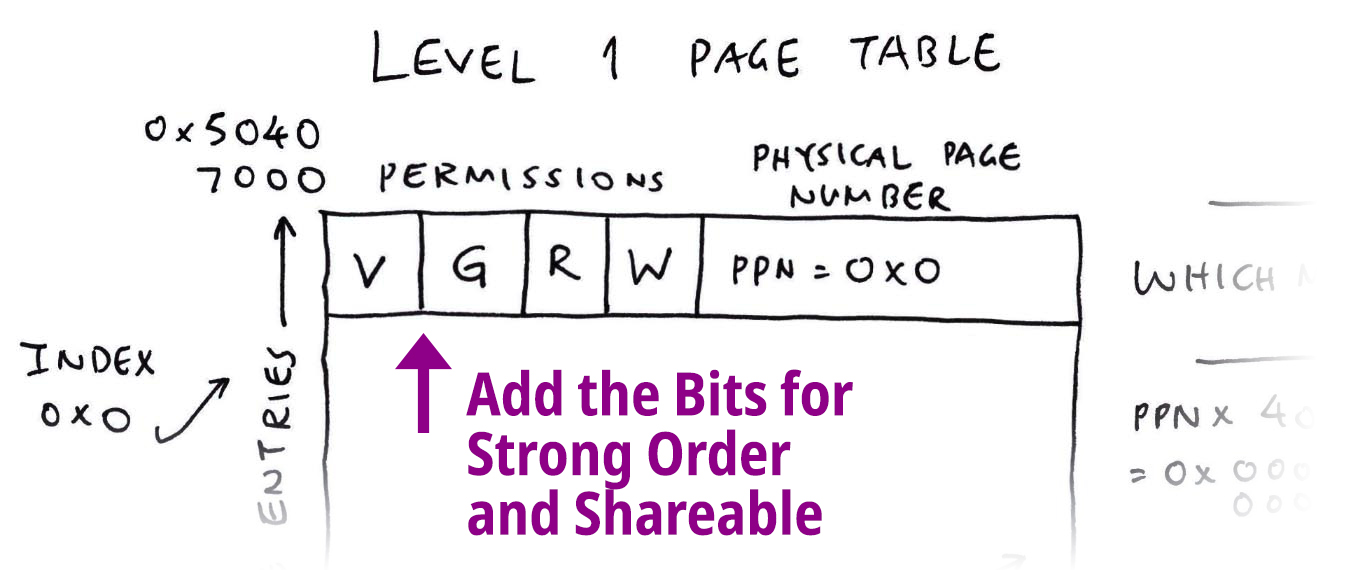 LEVEL 1 PAGE TABLE
0x5040
7000
PERMISSIONS
PHYSICAL PAGE
NUMBER
V G R W PPN = 0X0
INDEX
0X0
ENTRIES
Add the Bits for
Strong Order
and Shareable
WHICH
PPN X
= 0X